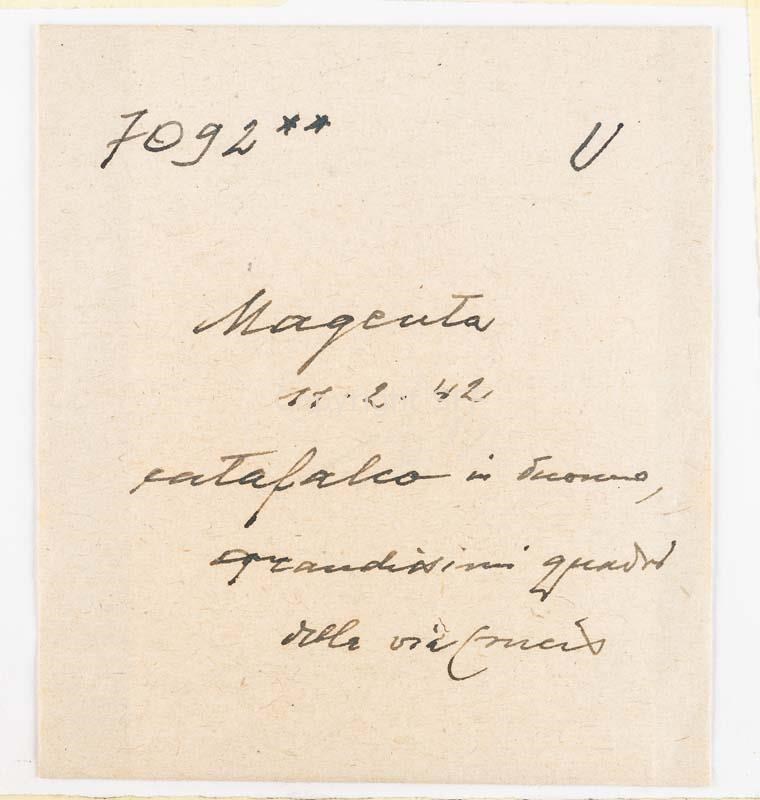 7092** U
Magenta
11.2.42.
catafalco in duomo,
grandiosimi quadri
della via Crucis